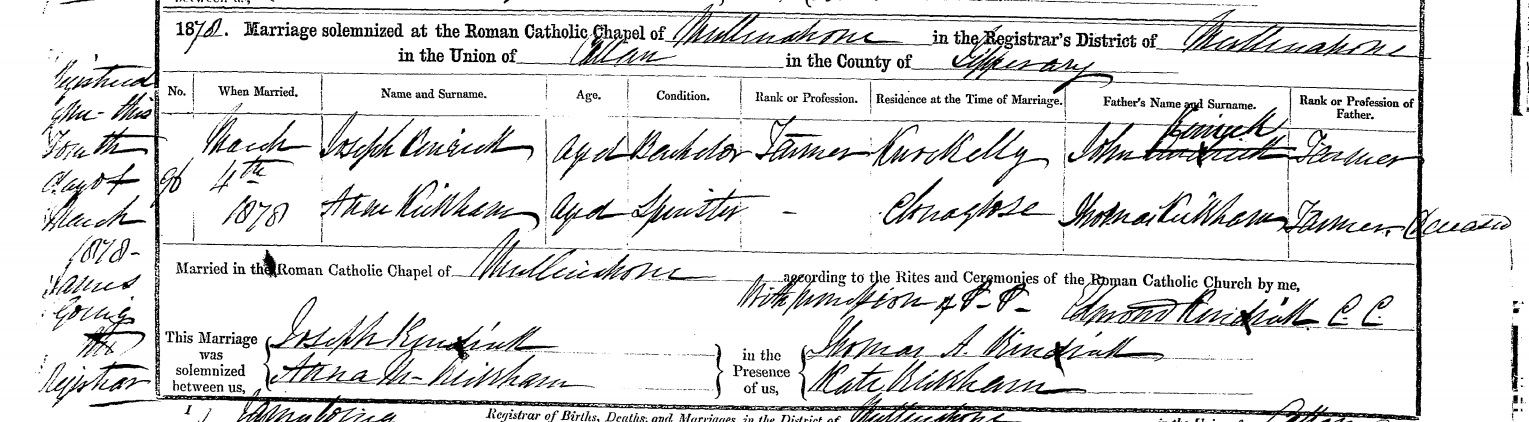 1878. Marriage solemnized at the Roman Catholic Chapel of Mullinahone in the Registrar's District of Mullinahone
in the Union of Callan in the County of Tipperary
No. When Married. Name and Surname. Age. Condition. Rank or Profession. Residence at the Time of Marriage. Father's Name and Surname. Rank or Profession of Father.
96 March 4th 1878 Joseph Kenrick Aged Bachelor Farmer Knockelly John Kenrick Farmer
Anne Kickham Aged Spinster - Clonaglose Thomas Kickham Farmer Deceased
Married in the Roman Catholic Chapel of Mullinahone according to the Rites and Ceremonies of the Roman Catholic Church by me,
With permission of P. P. Edmond Kendrick C. C.
This Marriage was solemnized between us, Joseph Kendrick
Anna M. Kickham
in the Presence of us, Thomas A. Kendrick
Kate Kickham
Registered
this
Fourth
day of
March
1878-
James
Going
Registrar
Registrar of Births, Deaths and Marriages, in the District of Mullinahone